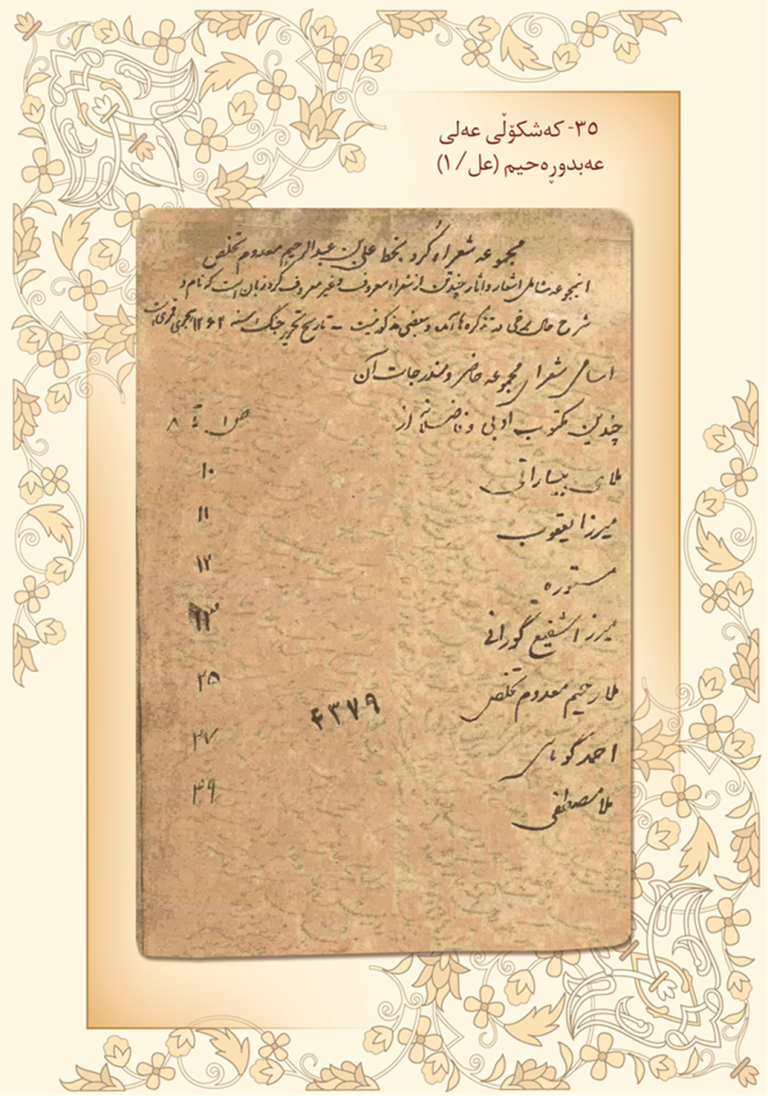 ٣٥- کەشکۆڵی عەلی
عەبدوڕەحیم (عل/١)
مجموعه شعراء کُرد بخط علی بن عبدالرحیم معدوم تخلص
اینمجموعه شامل اشعار و آثار چند تن از شعراء معروف و غیر معروف کرد زبان است که نام و
شرح حال برخی در تذکره‌ها آمده و بعضی مذکور نیست - تاریخ تحریر جنگ سنه ۱۲۶۲ هجری قمری است
اسامی شعرای مجموعه حاضر و مندرجات آن
چندین مکتوب ادبی و فاضلانه از ص ۱ تا ۸
ملای بیسارانی ۱۰
میرزا یعقوب ۱۱
مستوره ۱۲
میرزا شفیع گورانی
ملا رحیم معدوم تخلص ۲۵
۴۳۷۹
احمد گوماسی ۲۷
ملا مصطفی ۴۹